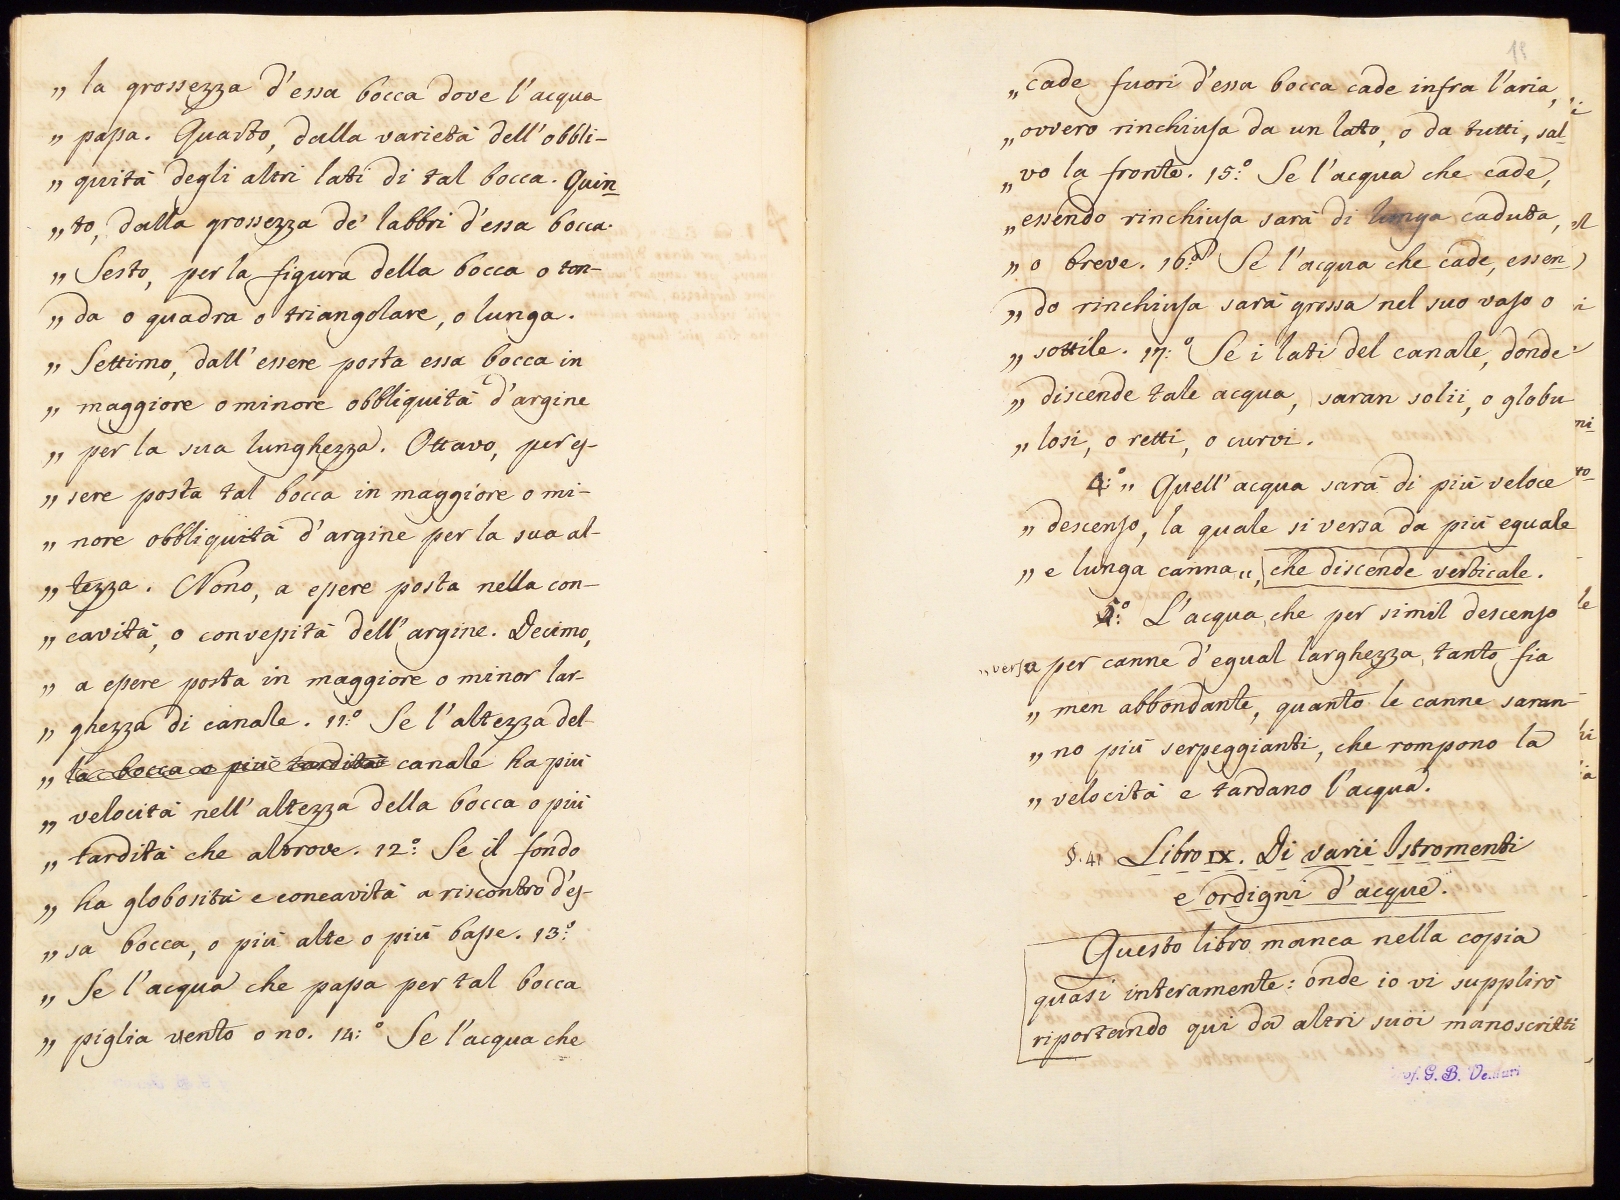 „ la grossezza d'essa bocca dove l'acqua
„ passa. Quarto, dalla varietà dell'obbli-
„ quità degli altri lati di tal bocca. Quin
„ to, dalla grossezza de' labbri d'essa bocca.
„ Sesto, per la figura della bocca o ton-
„ da o quadra o triangolare, o lunga.
„ Settimo, dall'essere posta essa bocca in
„ maggiore o minore obbliquità d'argine
„ per la sua lunghezza. Ottavo, per es-
„ sere posta tal bocca in maggiore o mi-
„ nore obbliquità d'argine per la sua al-
„ tezza. Nono, a essere posta nella con-
„ cavità, o convessità dell'argine. Decimo,
„ a essere posta in maggiore o minor lar-
„ ghezza di canale. 11:° Se l'altezza del
„ la bocca o più tardità canale ha più
„ velocità nell'altezza della bocca o più
„ tardità che altrove. 12:° Se il fondo
„ ha globosità e concavità a riscontro d'es-
„ sa bocca, o più alte o più basse. 13:°
„ Se l'acqua che passa per tal bocca
„ piglia vento o no. 14:° Se l'acqua che
„ cade fuori d'essa bocca cade infra l'aria,
„ ovvero rinchiusa da un lato, o da tutti, sal
„ vo la fronte. 15:° Se l'acqua che cade,
„ essendo rinchiusa sarà di lunga caduta,
„ o breve. 16:° Se l'acqua che cade, essen
„ do rinchiusa sarà grossa nel suo vaso o
„ sottile. 17:° Se i lati del canale, donde
„ discende tale acqua, saran solii, o globu
„ losi, o retti, o curvi.
4:° „ Quell'acqua sarà di più veloce
„ descenso, la quale si versa da più eguale
„ e lunga canna„, che discende verticale.
5:° L'acqua, che per simil descenso
„ versa per canne d'egual larghezza, tanto fia
„ men abbondante, quanto le canne saran-
„ no più serpeggianti, che rompono la
„ velocità e tardano l'acqua.
§. 41 Libro IX. Di varii Istromenti
e ordigni d'acque.
Questo libro manca nella copia
quasi interamente: onde io vi supplirò
riportando qui da altri suoi manoscritti
Prof. G. B. Venturi